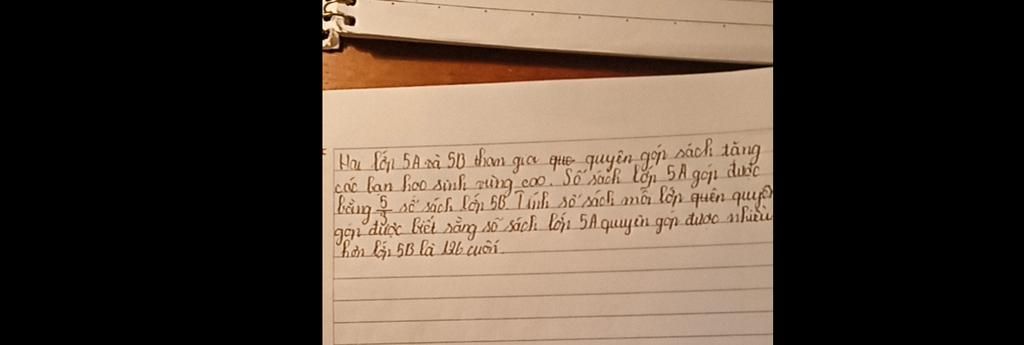 Hai lớp 5A và 5B tham gia quyên góp sách tặng
các bạn học sinh vùng cao. Số sách lớp 5A góp được
bằng 5/3 số sách lớp 5B. Tính số sách mỗi lớp quên quyên
góp được biết rằng số sách lớp 5A quyên góp được nhiều
hơn lớp 5B là 126 cuốn.